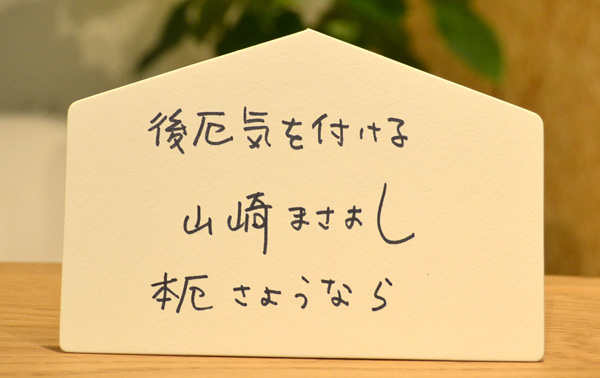 後厄気を付ける
山崎まさよし
本厄さようなら